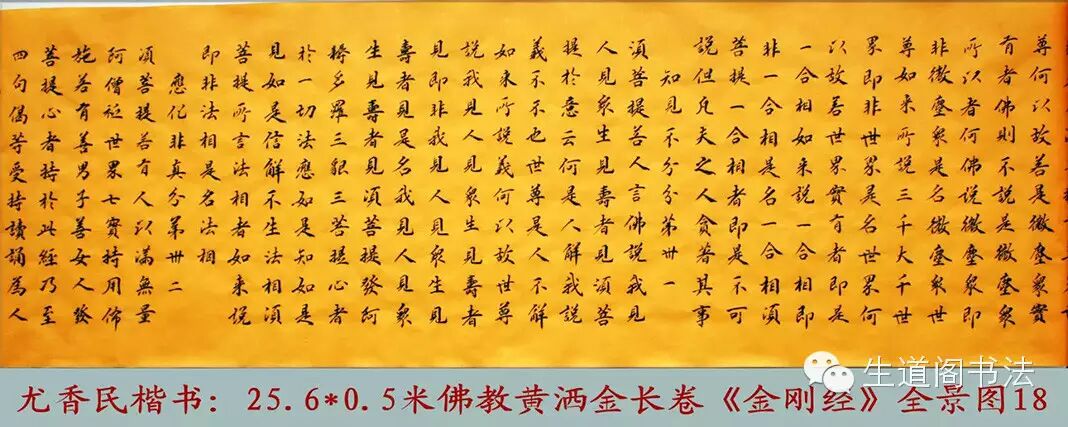 尊何以故若是微塵衆實
有者佛則不說是微塵衆
所以者何佛說微塵衆即
非微塵衆是名微塵衆世
尊如來所說三千大千世
界即非世界是名世界何
以故若世界實有者即是
一合相如來說一合相即
非一合相是名一合相須
菩提一合相者即是不可
說但凡夫之人貪著其事
知見不分分第卅一
須菩提若人言佛說我見
人見衆生見壽者見須菩
提於意云何是人解我說
義不不也世尊是人不解
如來所說義何以故世尊
說我見人見衆生見壽者
見即非我見人見衆生見
壽者見是名我見人見衆
生見壽者見須菩提發阿
耨多羅三藐三菩提心者
於一切法應如是知如是
見如是信解不生法相須
菩提所言法相者如來說
即非法相是名法相
應化非真分第卅二
須菩提若有人以滿無量
阿僧祇世界七寶持用佈
施若有善男子善女人發
菩提心者持於此經乃至
四句偈等受持讀誦為人
生道阁书法
尤香民楷书：25.6*0.5米佛教黄洒金长卷《金刚经》全景图18